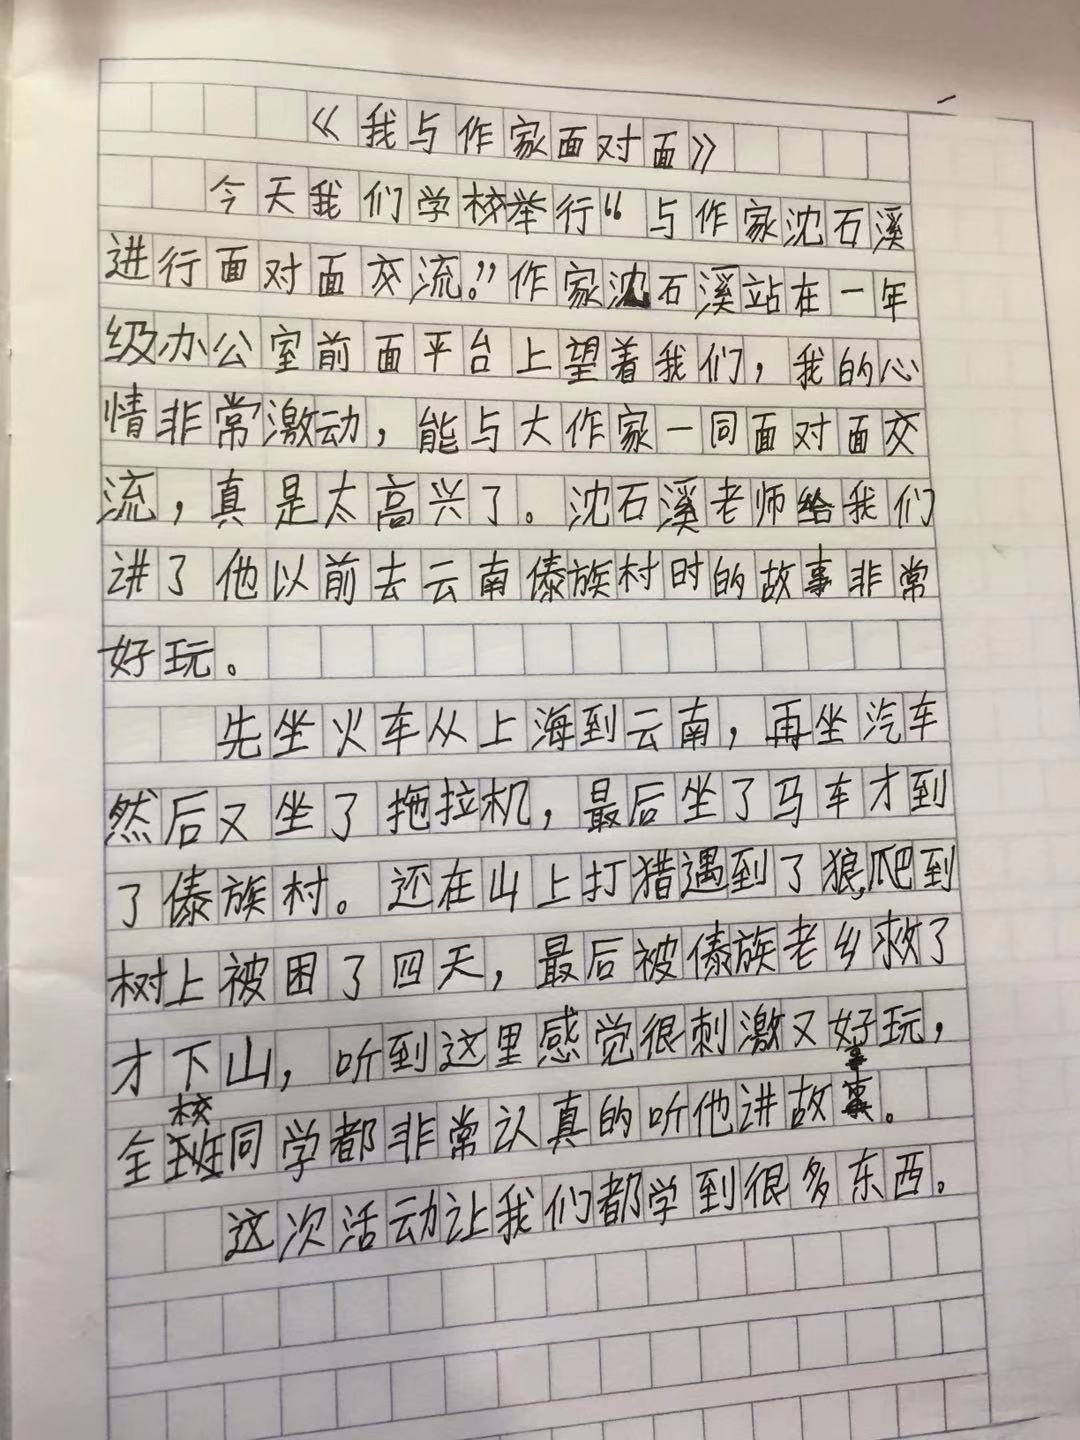 《我与作家面对面》
今天我们学校举行“与作家沈石溪
进行面对面交流。”作家沈石溪站在一年
级办公室前面平台上望着我们，我的心
情非常激动，能与大作家一同面对面交
流，真是太高兴了。沈石溪老师给我们
讲了他以前去云南傣族村时的故事非常
好玩。
先坐火车从上海到云南，再坐汽车
然后又坐了拖拉机，最后坐了马车才到
了傣族村。还在山上打猎遇到了狼，爬到
树上被困了四天，最后被傣族老乡救了
才下山，听到这里感觉很刺激又好玩，
全校同学都非常认真的听他讲故事。
这次活动让我们都学到很多东西。